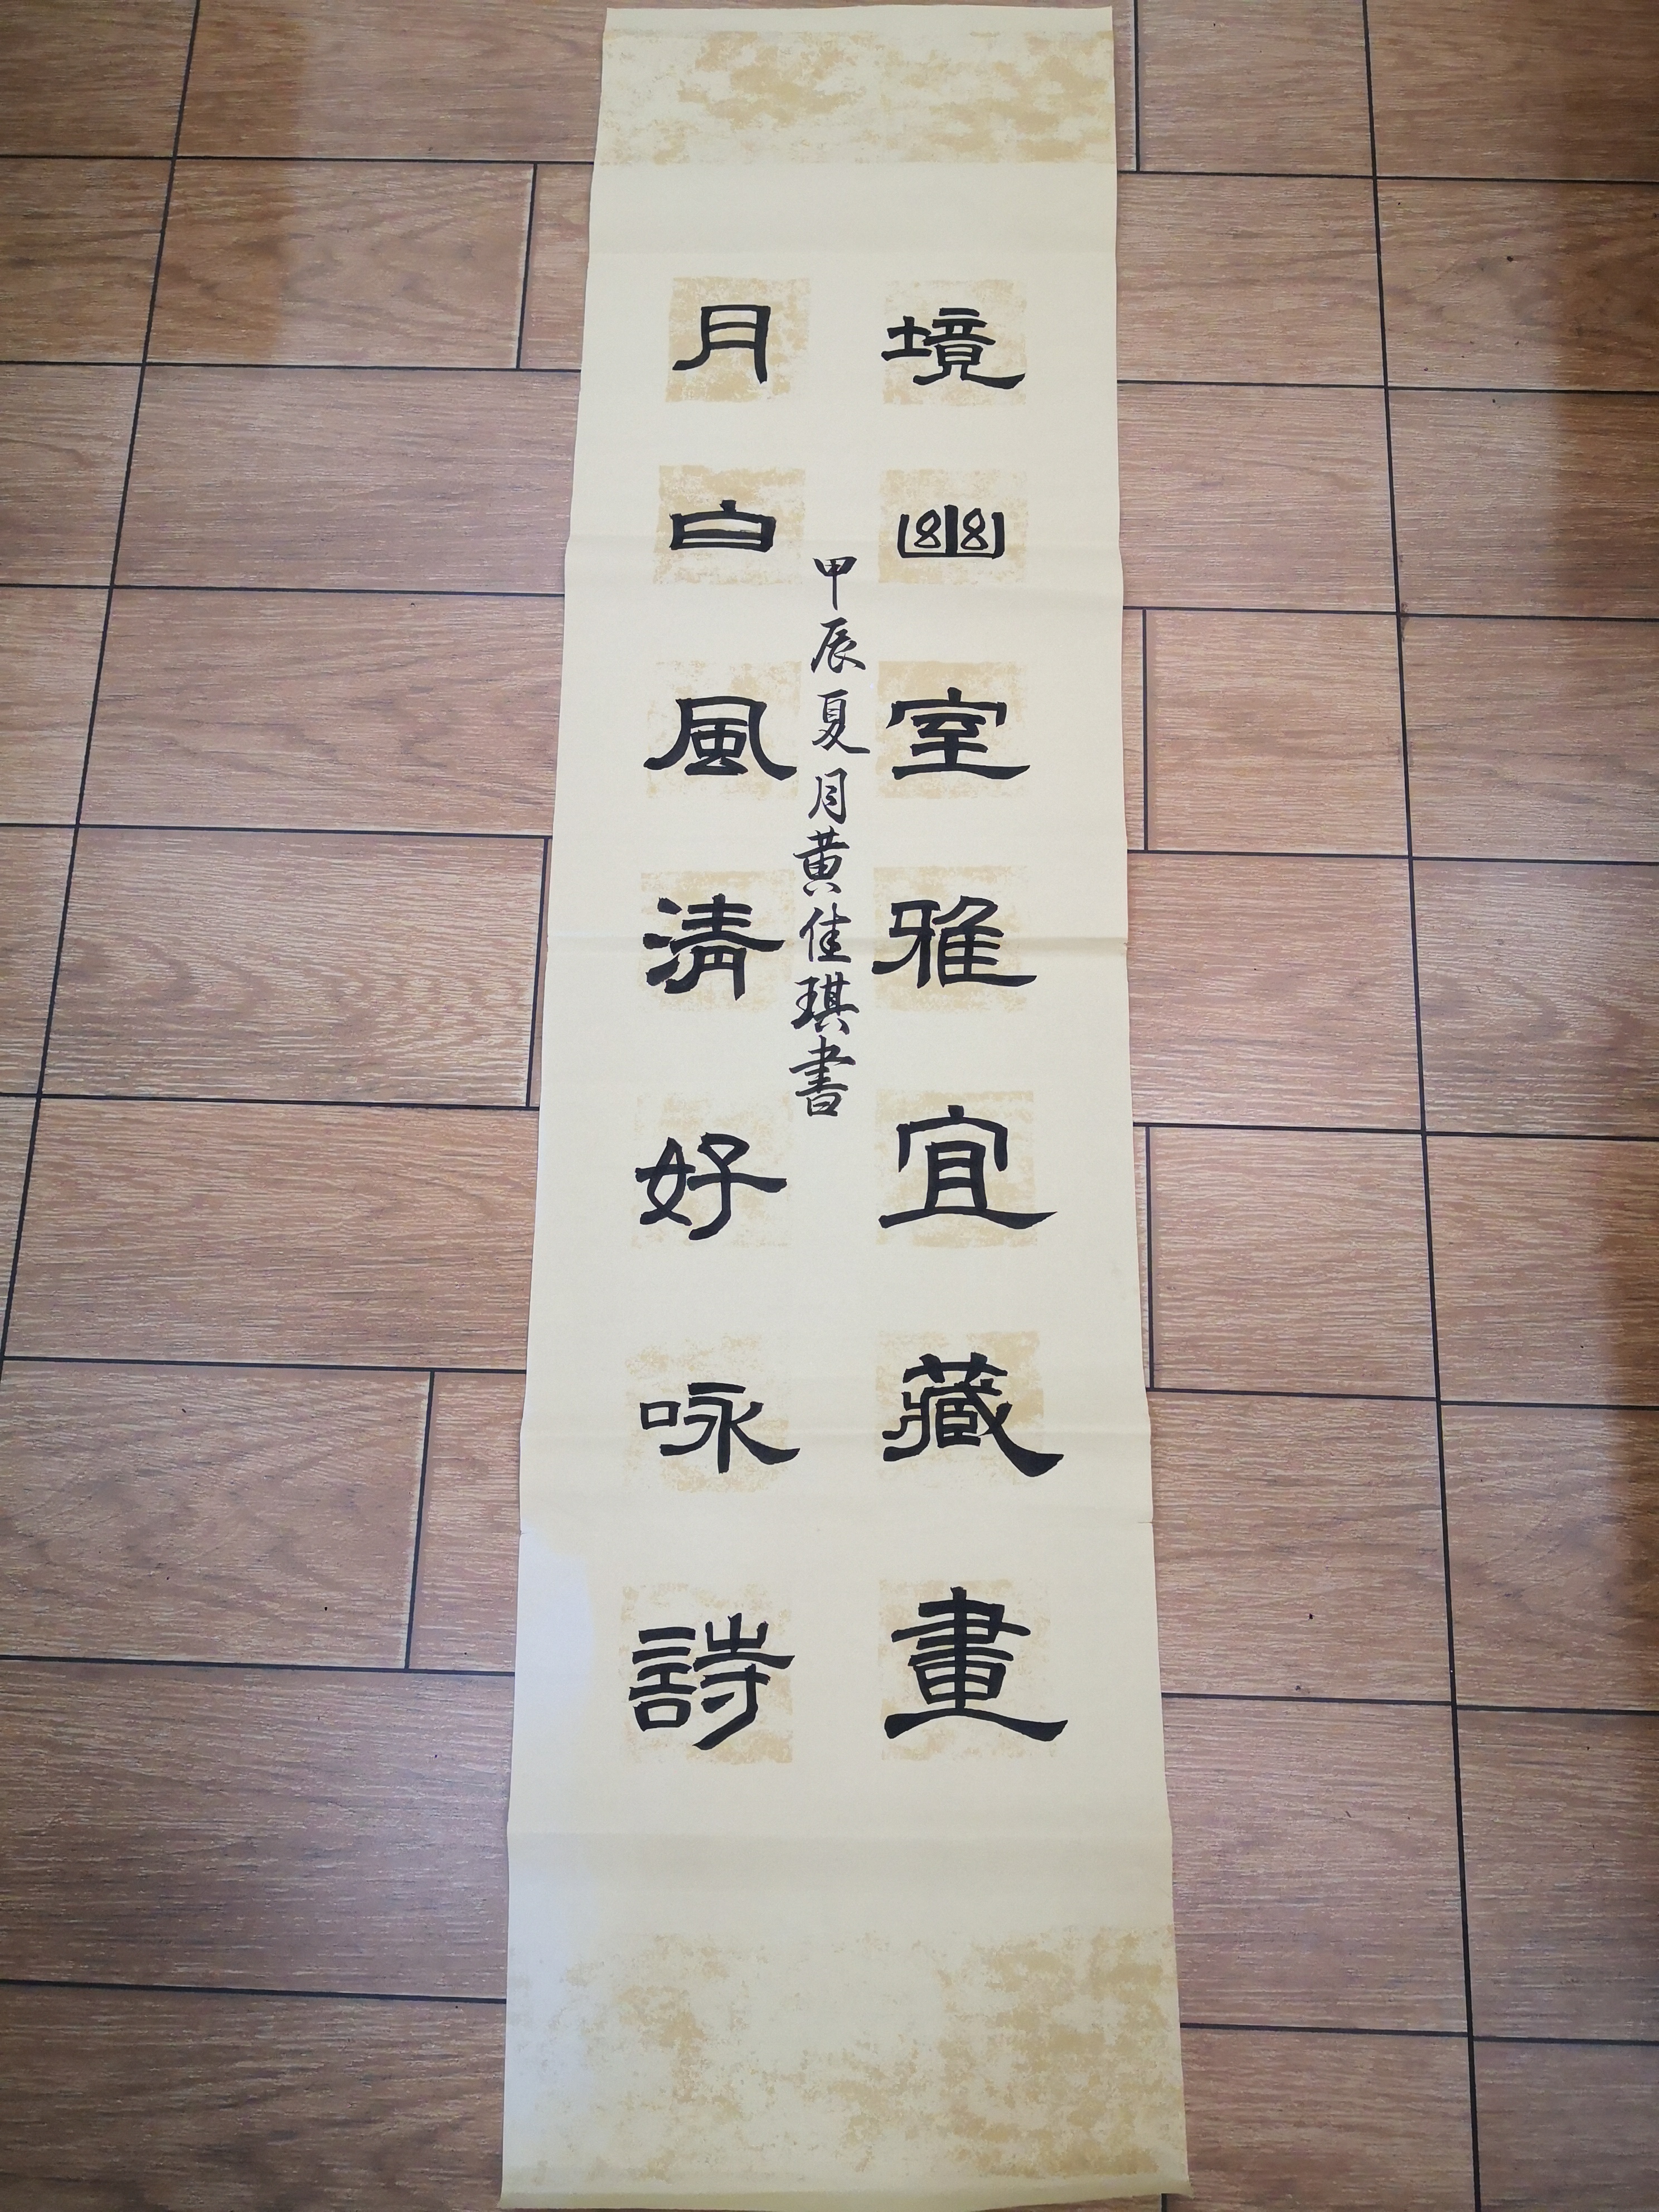 境幽室雅宜藏畫
月白風清好咏詩
甲辰夏月黄佳琪書